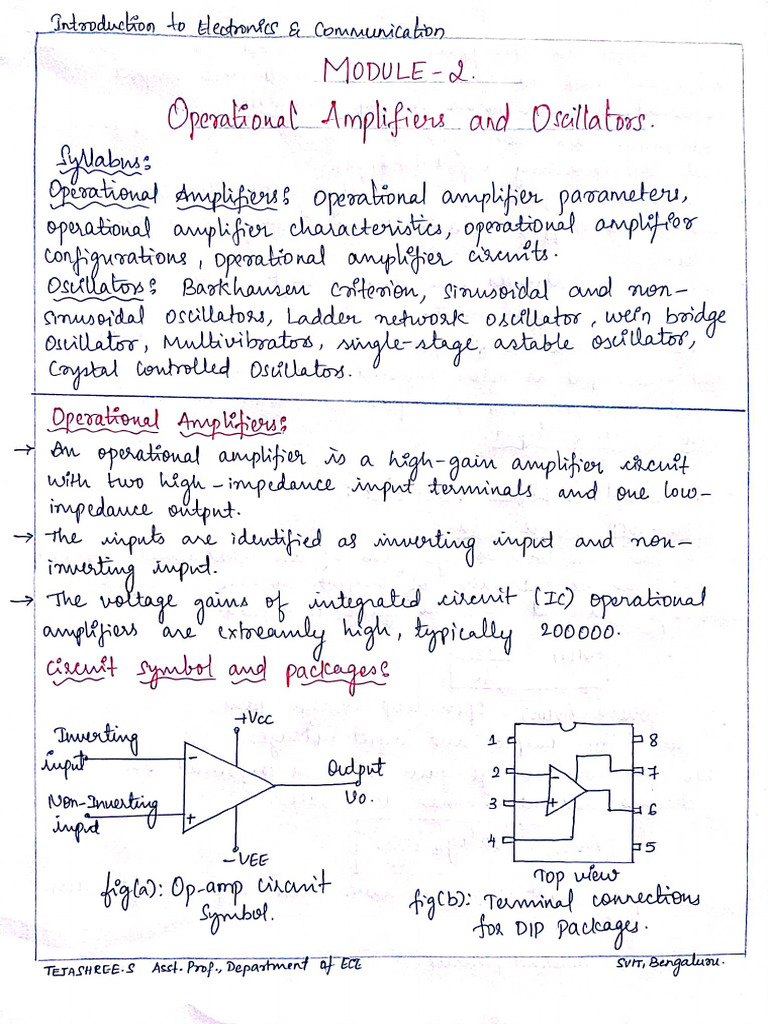 Introduction to Electronics & Communication
MODULE-2.
Operational Amplifiers and Oscillators.
Syllabus:
Operational Amplifiers: Operational amplifier parameters,
operational amplifier characteristics, operational amplifier
configurations, operational amplifier circuits.
Oscillators: Barkhausen Criterion, sinusoidal and non-
sinusoidal oscillators, Ladder network oscillator, wein bridge
oscillator, Multivibrators, single-stage astable oscillator,
Crystal Controlled Oscillators.
Operational Amplifiers:
→ An operational amplifier is a high-gain amplifier circuit
with two high-impedance input terminals and one low-
impedance output.
→ The inputs are identified as inverting input and non-
inverting input.
→ The voltage gains of integrated circuit (IC) operational
amplifiers are extreamly high, typically 200000.
Circuit symbol and packages:
Inverting
input
Non-Inverting
input
-
+
+Vcc
-VEE
Output
Vo.
fig(a): Op-amp circuit
Symbol.
1
2
3
4
-
+
8
7
6
5
Top view
fig(b): Terminal connections
for DIP packages.
TEJASHREE.S Asst. Prof., Department of ECE
SVIT, Bengaluru.